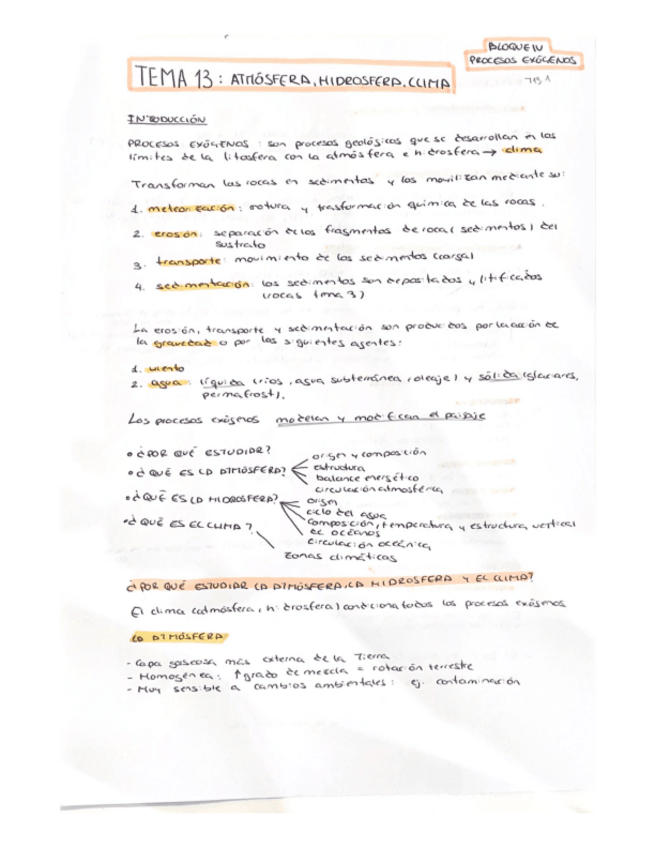 BLOQUE IV
PROCESOS EXÓGENOS
TEMA 13: ATMÓSFERA, HIDROSFERA, CLIMA
INTRODUCCIÓN
PROCESOS EXÓGENOS: son procesos geológicos que se desarrollan en los
límites de la litosfera con la atmósfera e hidrosfera → clima
Transforman las rocas en sedimentos y los movilizan mediante su:
1. meteorización: rotura y trasformación química de las rocas.
2. erosión: separación de los fragmentos de roca (sedimentos) del
sustrato
3. transporte: movimiento de los sedimentos (carga)
4. sedimentación: los sedimentos son depositados y litificados
(rocas tema 3)
La erosión, transporte y sedimentación son producidos por la acción de
la gravedad o por los siguientes agentes:
1. viento
2. agua: líquida (ríos, agua subterránea, oleaje) y sólida (glaciares,
permafrost).
Los procesos exógenos modelan y modifican el paisaje
• ¿POR QUÉ ESTUDIAR?
• ¿QUÉ ES LA ATMÓSFERA?
origen y composición
estructura
balance energético
circulación atmosférica
• ¿QUÉ ES LA HIDROSFERA?
origen
ciclo del agua
composición, temperatura y estructura vertical
de océanos
circulación oceánica
• ¿QUÉ ES EL CLIMA?
zonas climáticas
¿POR QUÉ ESTUDIAR LA ATMÓSFERA, LA HIDROSFERA Y EL CLIMA?
El clima (atmósfera, hidrosfera) condiciona todos los procesos exógenos
LA ATMÓSFERA
- Capa gaseosa más externa de la Tierra
- Homogénea: ↑grado de mezcla = rotación terrestre
- Muy sensible a cambios ambientales: ej. contaminación